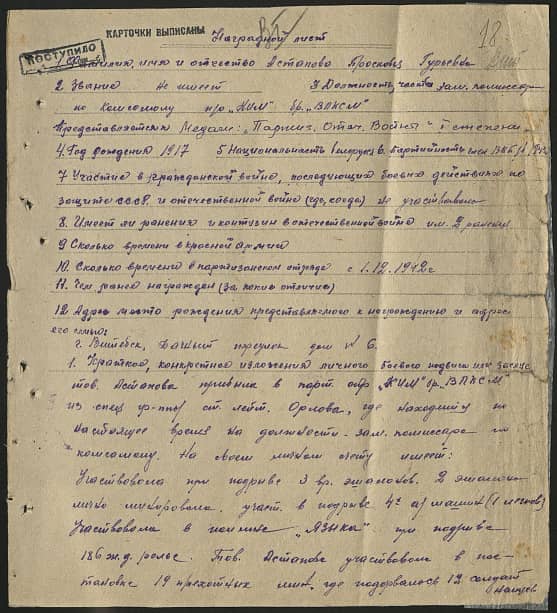 КАРТОЧКИ ВЫПИСАНЫ
18
ПОСТУПИЛО
Наградной лист
1. Фамилия, имя и отчество Астапова Гурьевна
2 Звание Не имеет 3 Должность, часть зам. комиссара
по комсомолу п/о "КИМ" бр. "ВЛКСМ"
Представляется к Медали: "Партиз. Отеч. Войны" I степени
4. Год рождения 1917 5 Национальность 6. партийность
7 Участие в гражданской войне, последующих боевых действиях по
защите СССР и отечественной войне (где, когда) не участвовала
8. Имеет ли ранения и контузии в отечественной войне им. 2 ранения
9 Сколько времени в красной армии
10. Сколько времени в партизанском отряде с 1.12.1942 г
11. Чем ранее награжден (за какие отличия)
12 Адрес место рождения представляемого к награждению и адрес
его семьи:
г. Витебск, переулок дом № 6.
1. Краткое, конкретное изложение личного боевого подвига или заслуг
тов. Астапова прибыла в парт. отр "КИМ" бр. "ВЛКСМ"
из спец гр-ппы ст. лейт. Орлова, где находится по
настоящее время на должности - зам. комиссара по
комсомолу. На своем личном счету имеет:
Участвовала при подрыве 3 вр. эшалонов. 2 эшалона
лично минировала. участ. в подрыве 4х а/машин (1 легков)
Участвовала в поимке "Языка" при подрыве
186 ж.д. рельс. Тов. Астапова участвовала в пос-
тановке 19 пехотных мин, где подорвалось 12 солдат
нацев